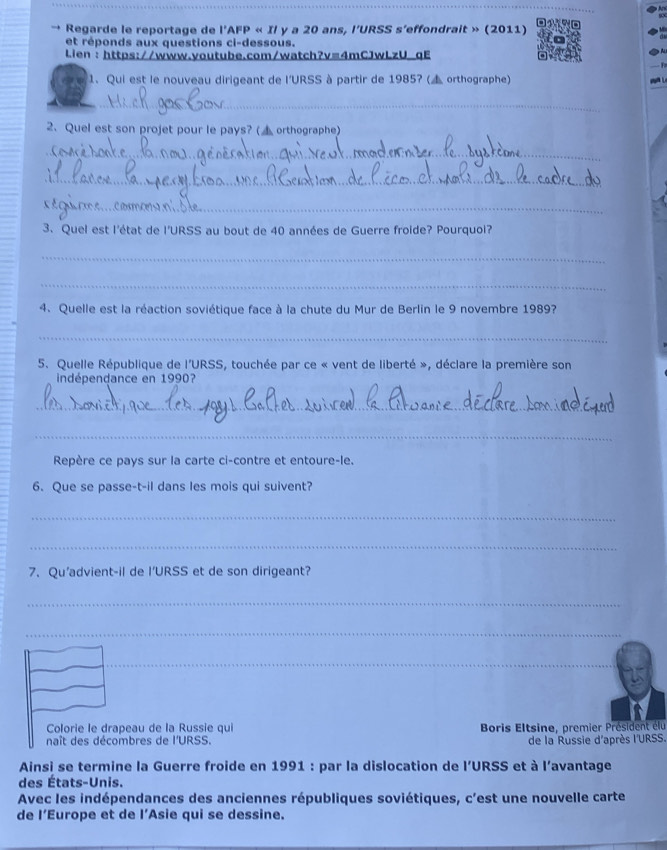 → Regarde le reportage de l'AFP « Il y a 20 ans, l'URSS s'effondrait » (2011)
et réponds aux questions ci-dessous.
Lien : https://www.youtube.com/watch?v=4mCJwLzU_qE
1. Qui est le nouveau dirigeant de l'URSS à partir de 1985? (⚠ orthographe)
Mich gorbov
2. Quel est son projet pour le pays? (⚠ orthographe)
la nou génération qui veut moderniser le système
il lance la une libération de l'éco et mais de le cadre du
régime communiste
3. Quel est l'état de l'URSS au bout de 40 années de Guerre froide? Pourquoi?
4. Quelle est la réaction soviétique face à la chute du Mur de Berlin le 9 novembre 1989?
5. Quelle République de l'URSS, touchée par ce « vent de liberté », déclare la première son
indépendance en 1990?
les soviét, que les pays baltes suivent la lituanie déclare son indépend
Repère ce pays sur la carte ci-contre et entoure-le.
6. Que se passe-t-il dans les mois qui suivent?
7. Qu'advient-il de l'URSS et de son dirigeant?
Colorie le drapeau de la Russie qui
naît des décombres de l'URSS.
Boris Eltsine, premier Président élu
de la Russie d'après l'URSS.
Ainsi se termine la Guerre froide en 1991 : par la dislocation de l'URSS et à l'avantage
des États-Unis.
Avec les indépendances des anciennes républiques soviétiques, c'est une nouvelle carte
de l'Europe et de l'Asie qui se dessine.